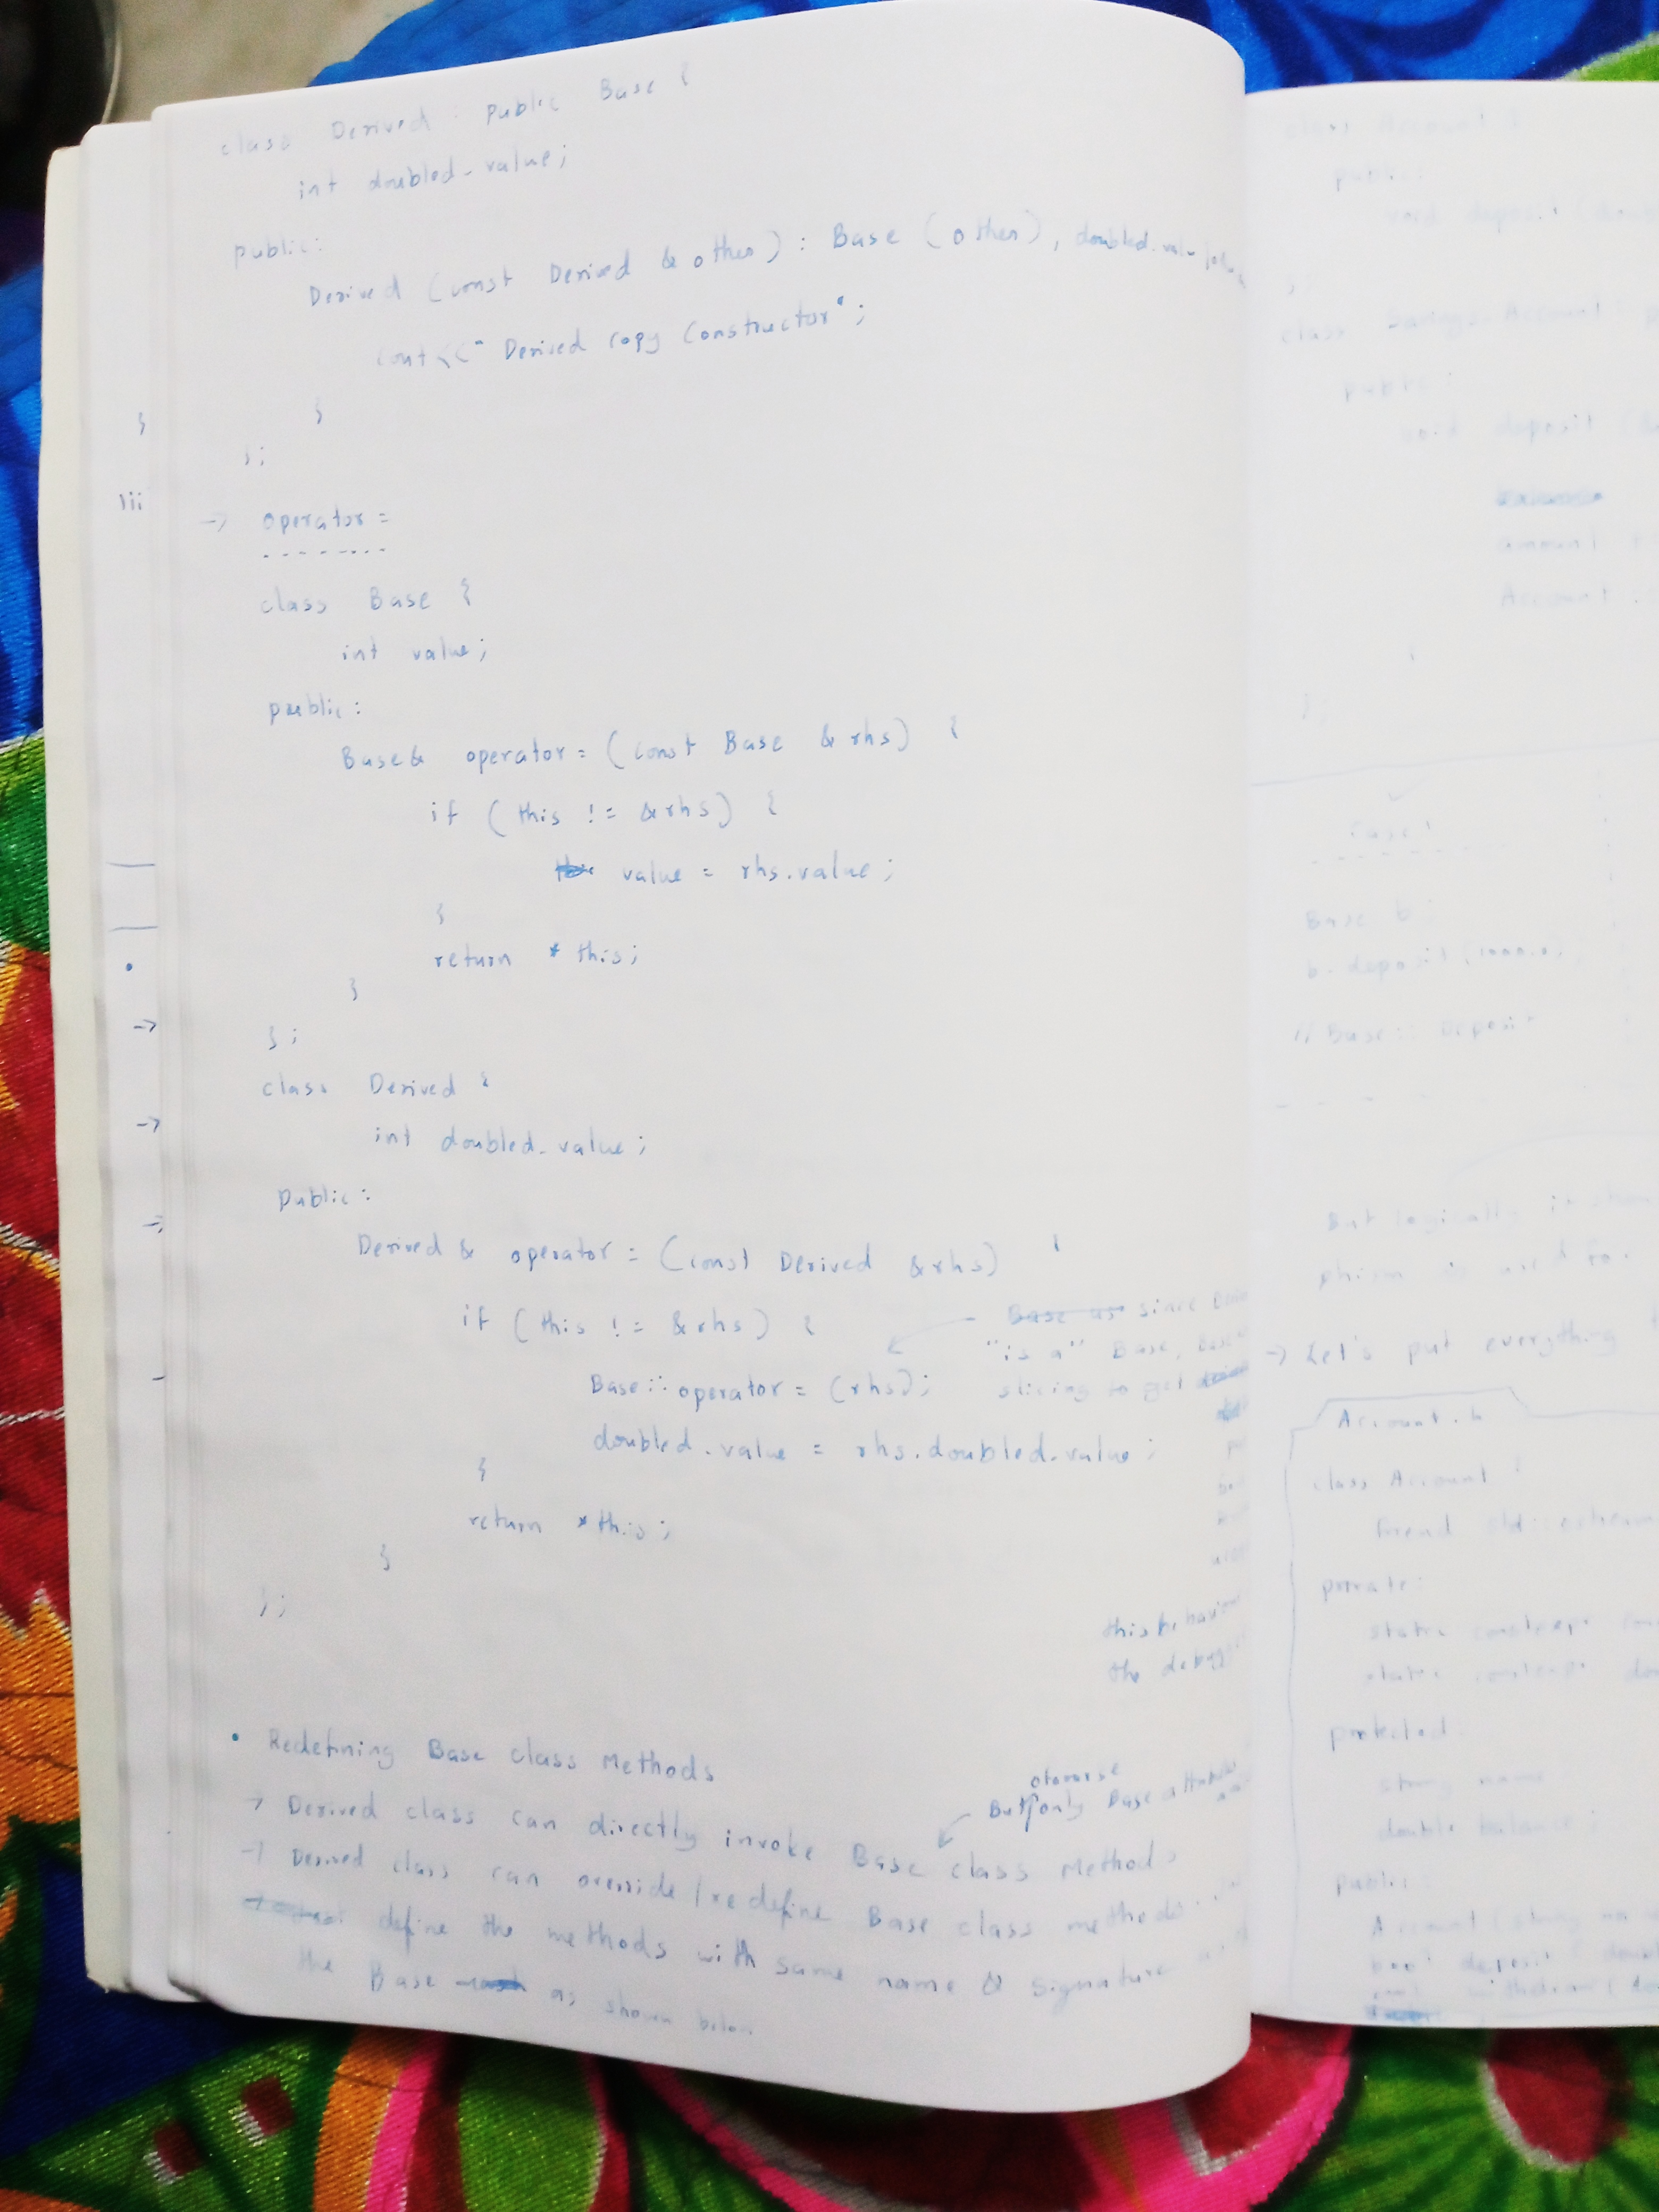 class Derived : public Base {
int doubled_value;
public:
Derived (const Derived & other) : Base (other), doubled_value
cout << "Derived copy constructor";
}
};
}
iii
→ operator=
class Base {
int value;
public:
Base& operator= (const Base & rhs) {
if (this != &rhs) {
value = rhs.value;
}
return *this;
}
};
class Derived {
int doubled_value;
public:
Derived & operator = (const Derived &rhs) {
if (this != &rhs) {
Base as since
"is a" Base,
Base::operator = (rhs);
slicing to get
doubled_value = rhs.doubled_value;
}
return *this;
}
};
this behavior
the debug
• Redefining Base class Methods
otherwise
But only Base
→ Derived class can directly invoke Base class Methods
→ Derived class can override/redefine Base class methods
define the methods with same name & signature
the Base as shown below
class Account {
public:
void deposit (
};
class Savings Account :
public:
void deposit (
amount
Account :
}
};
Case 1
Base b;
b.deposit (1000.0);
// Base:: Deposit
But logically it
phism is used for
→ Let's put everything
Account.h
class Account {
friend std::ostream
private:
static constexpr
static constexpr
protected:
string name
double balance;
public:
Account (string
bool deposit (
bool withdraw (